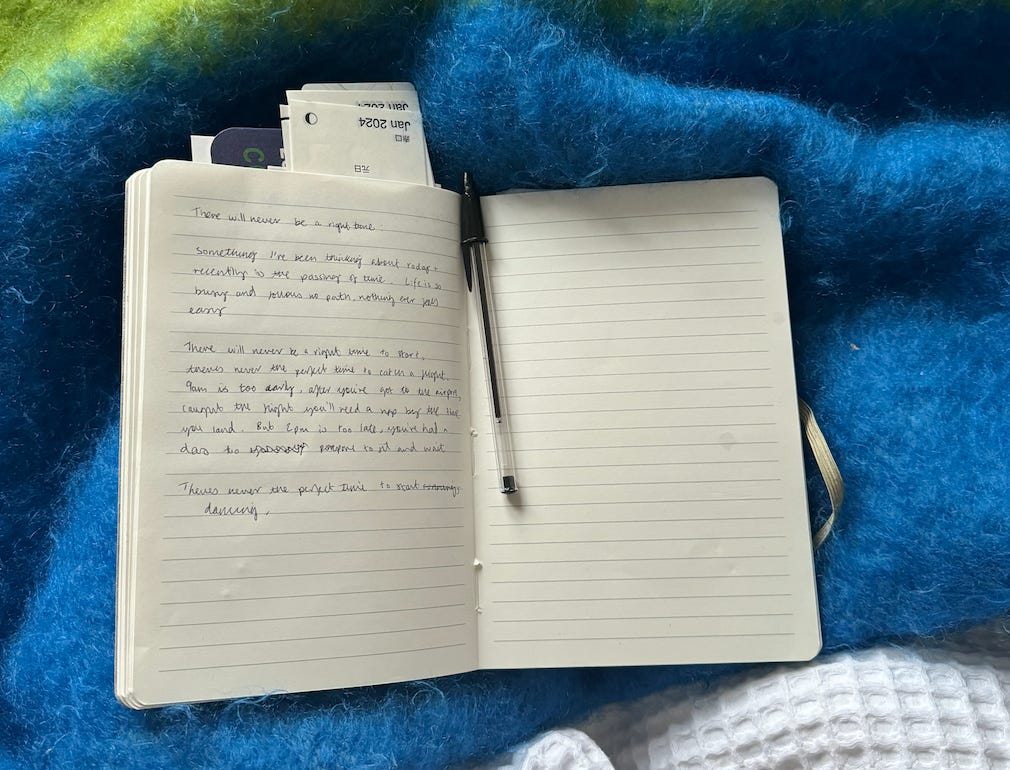 Jan 2024
Jan 2024
赤口
元日
C
There will never be a right time.
Something I've been thinking about today +
recently is the passing of time. Life is so
busy and follows no path, nothing ever feels
easy
There will never be a right time to start,
theres never the perfect time to catch a flight.
9am is too early, after you've got to the airport,
caught the flight you'll need a nap by the time
you land. But 2pm is too late, you've had a
day to and wait
Theres never the perfect time to start
dancing.